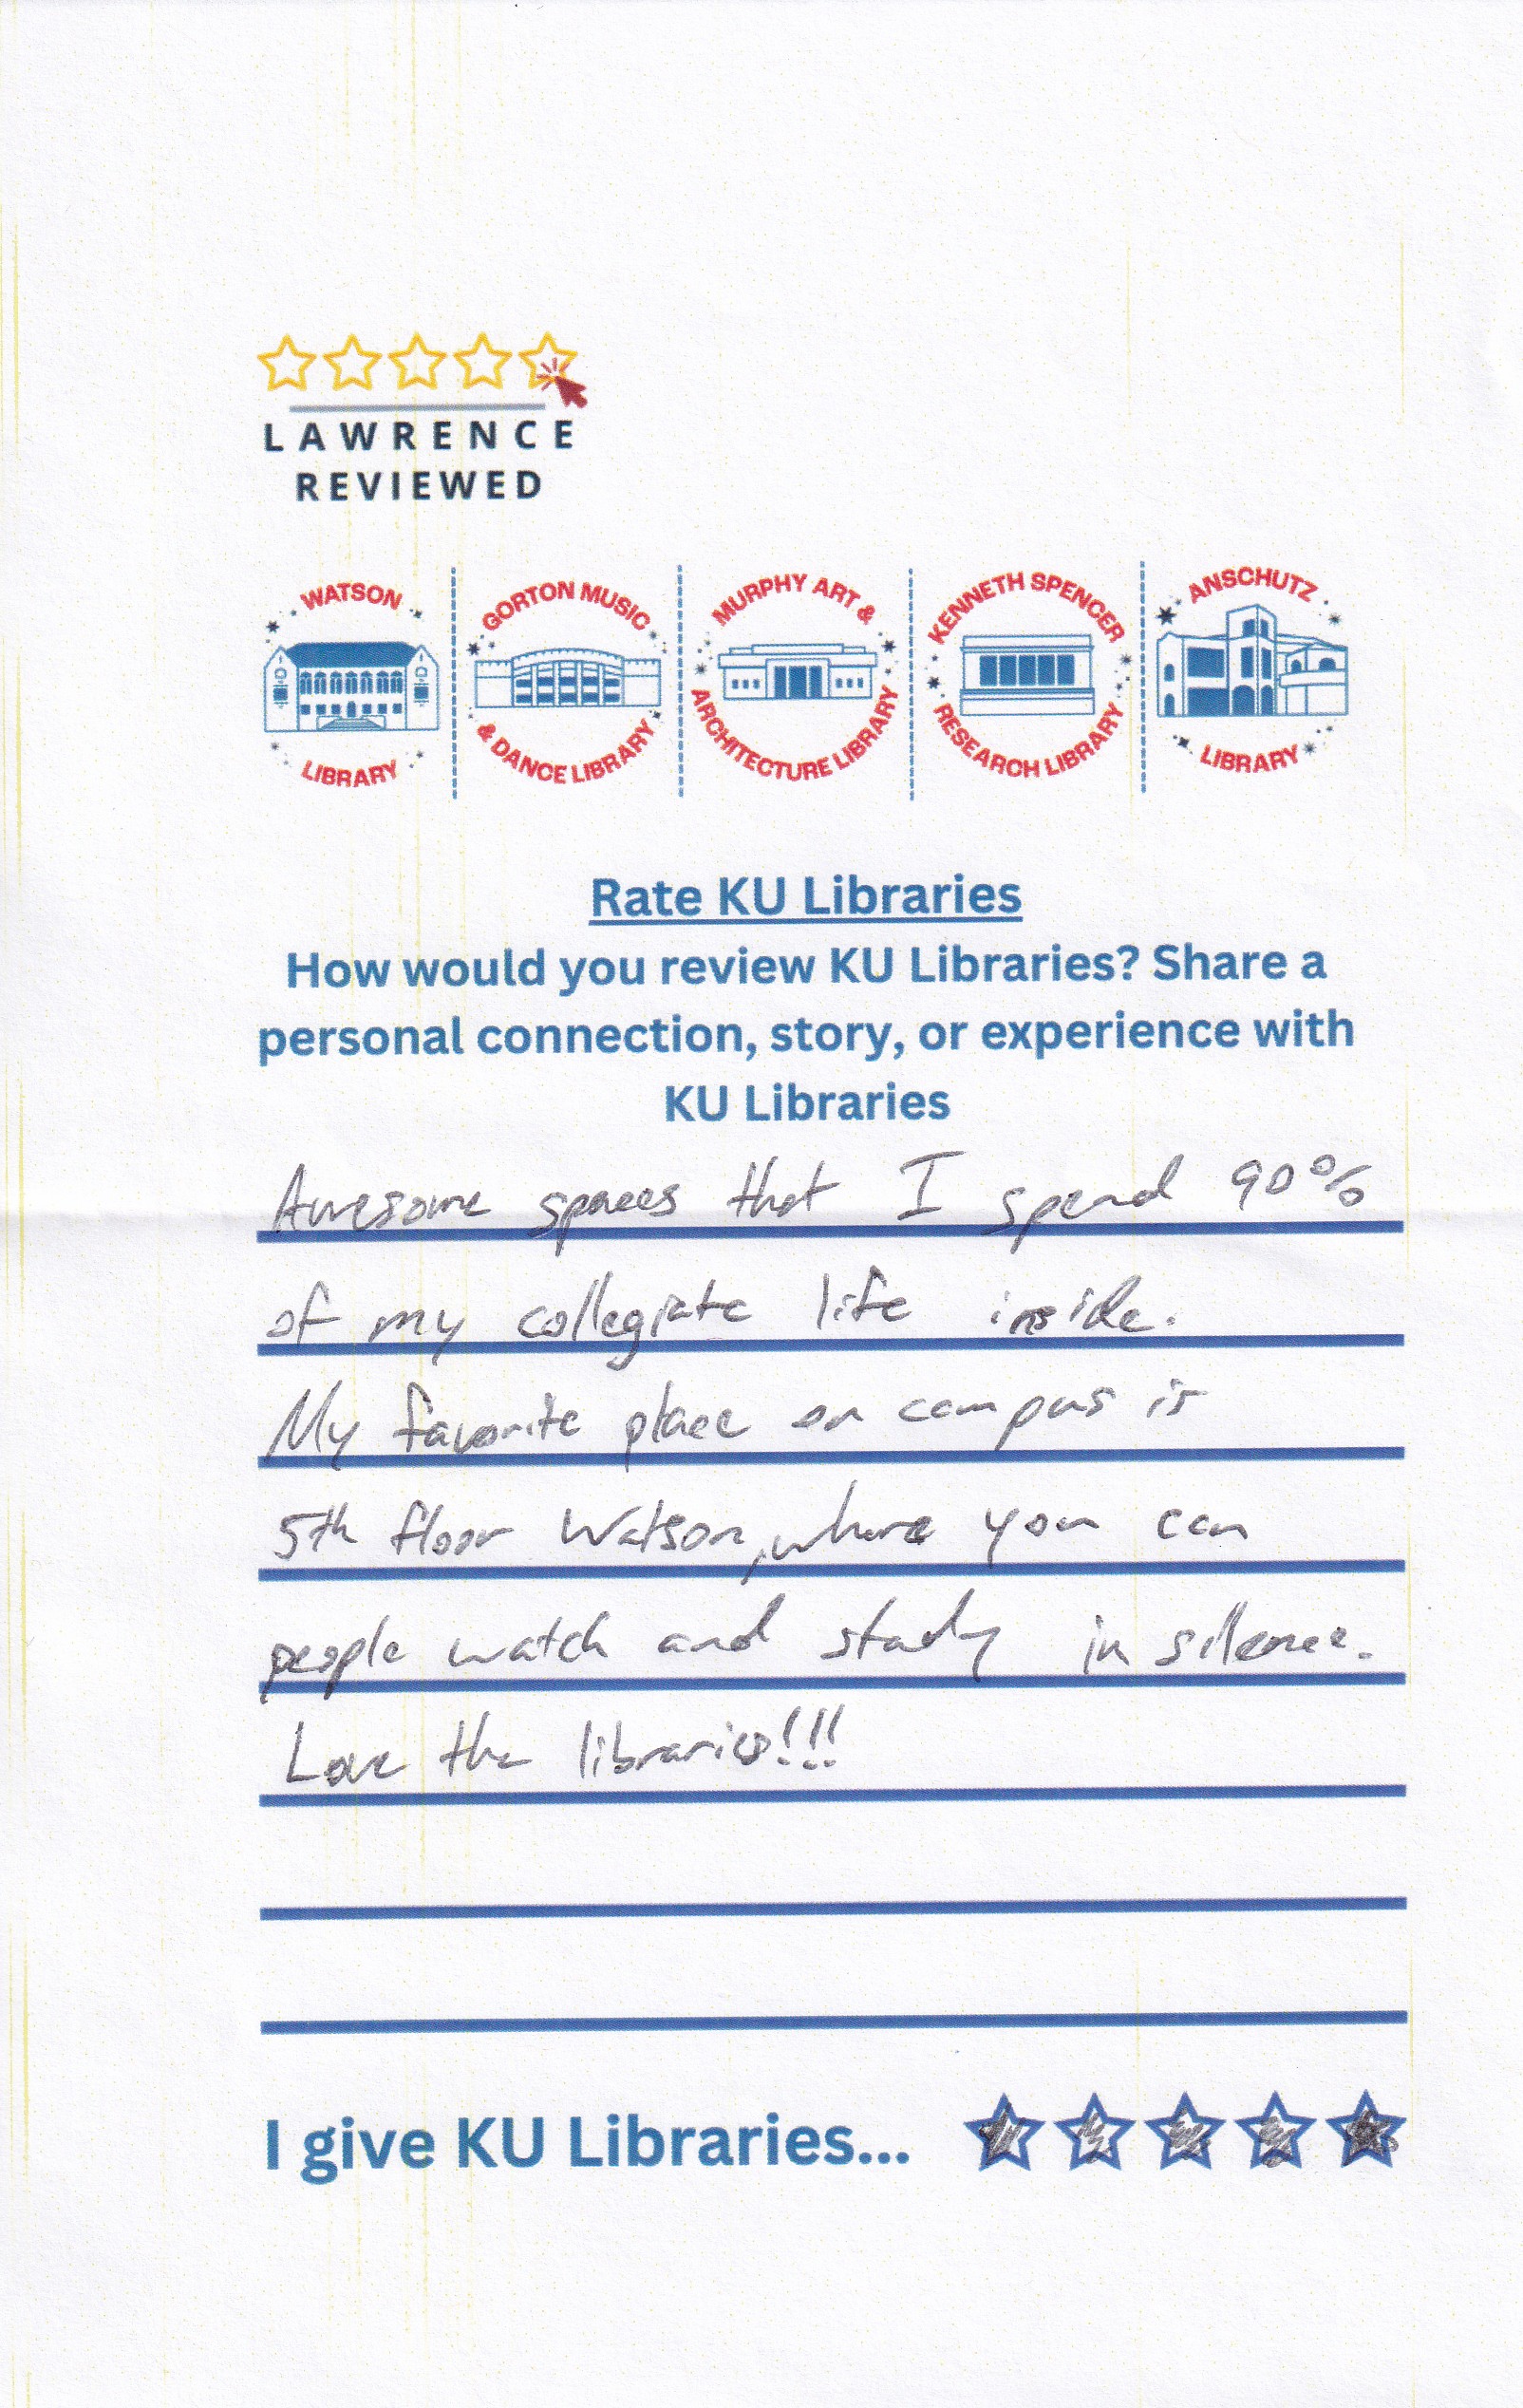 LAWRENCE
REVIEWED
WATSON
LIBRARY
GORTON MUSIC
& DANCE LIBRARY
MURPHY ART &
ARCHITECTURE LIBRARY
KENNETH SPENCER
RESEARCH LIBRARY
ANSCHUTZ
LIBRARY
Rate KU Libraries
How would you review KU Libraries? Share a
personal connection, story, or experience with
KU Libraries
Awesome spaces that I spend 90%
of my collegiate life inside.
My favorite place on campus is
5th floor Watson, where you can
people watch and study in silence.
Love the libraries!!!
I give KU Libraries...